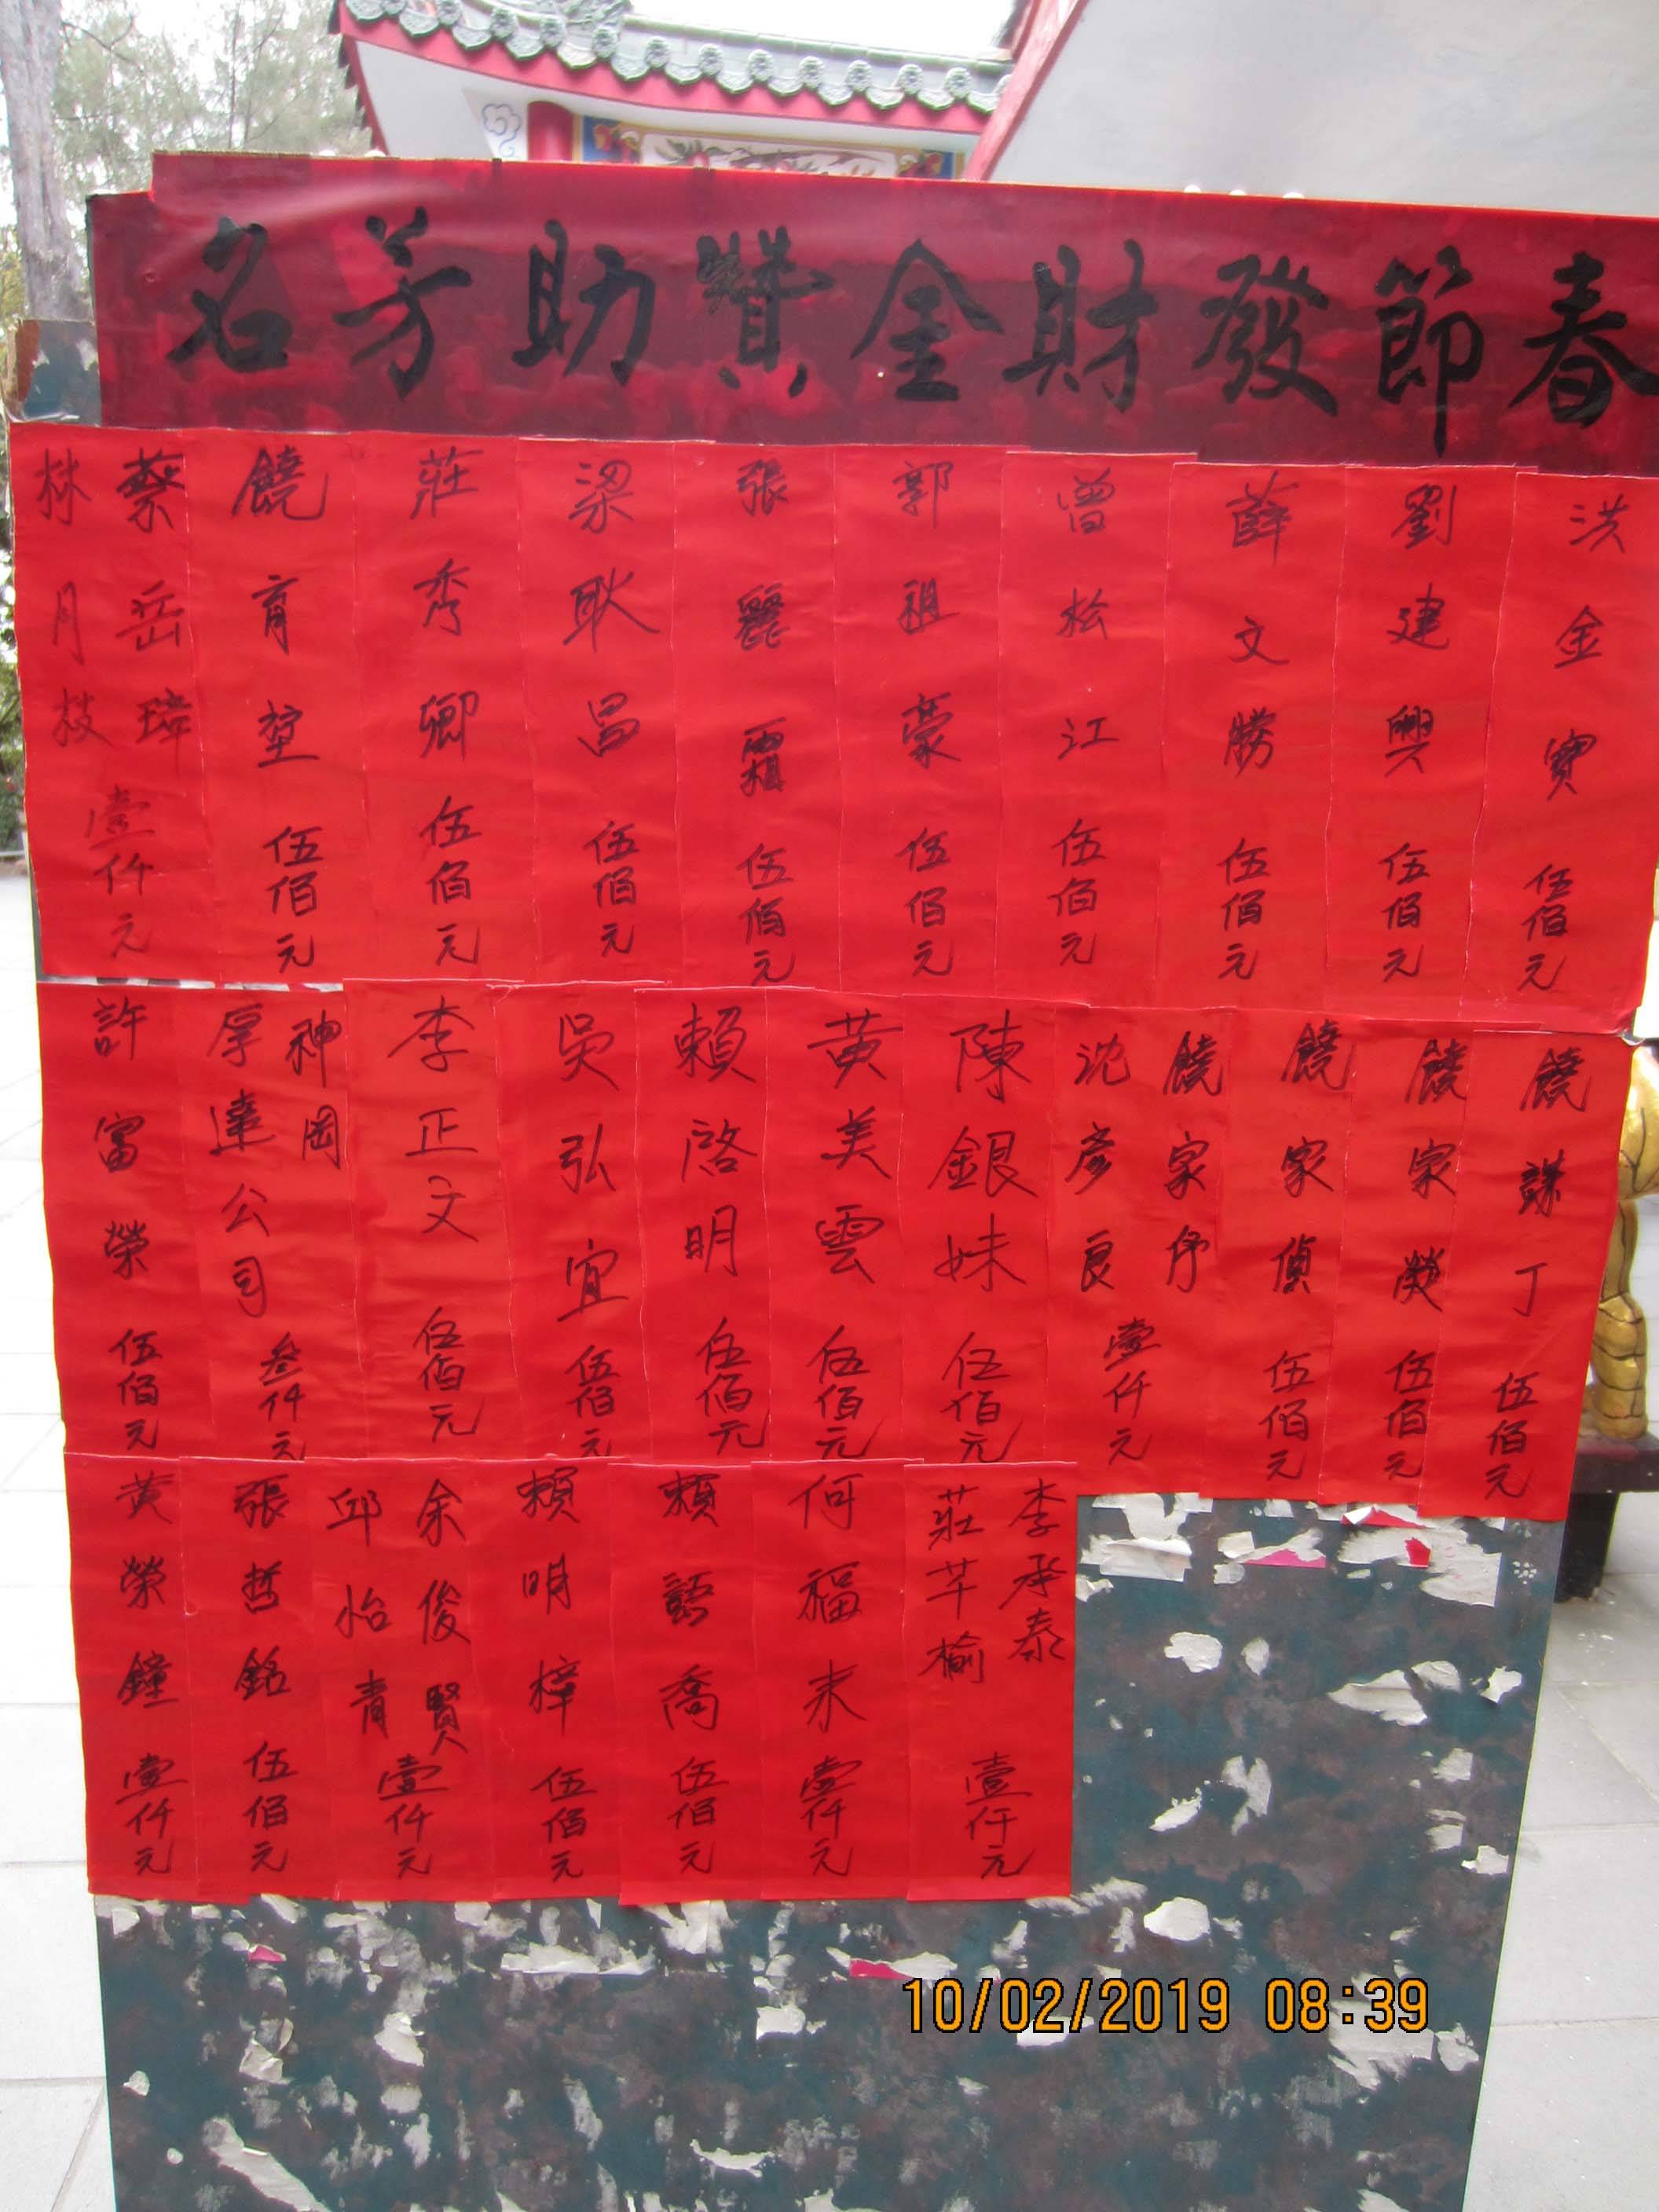 春節發財金贊助芳名
洪金寶 伍佰元
劉建興 伍佰元
薛文勝 伍佰元
曾松江 伍佰元
郭祖豪 伍佰元
張麗霜 伍佰元
梁耿昌 伍佰元
莊秀卿 伍佰元
饒育堃 伍佰元
蔡岳璋
林月枝
壹仟元
饒謀丁 伍佰元
饒家燰 伍佰元
饒家偵 伍佰元
饒家伃
沈彥良
壹仟元
陳銀妹 伍佰元
黃美雲 伍佰元
賴啓明 伍佰元
吳弘宜 伍佰元
李正文 伍佰元
神岡
厚達公司
叁仟元
許富榮 伍佰元
李承泰
莊芊榆
壹仟元
何福來 壹仟元
賴語喬 伍佰元
賴明梓 伍佰元
余俊賢
邱怡青
壹仟元
張哲銘 伍佰元
黃榮鐘 壹仟元
10/02/2019 08:39